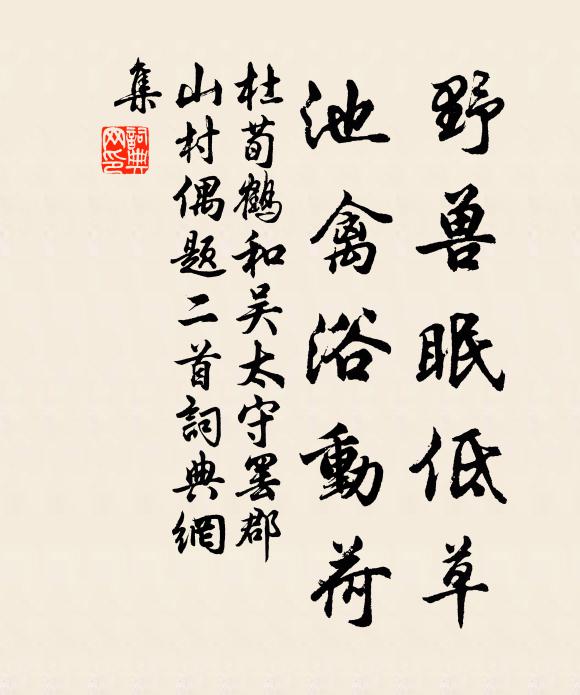 野兽眠低草
池禽浴動荷
杜荀鶴和吴太守罢郡
山村偶题二首詞典網
集
詞典
网印